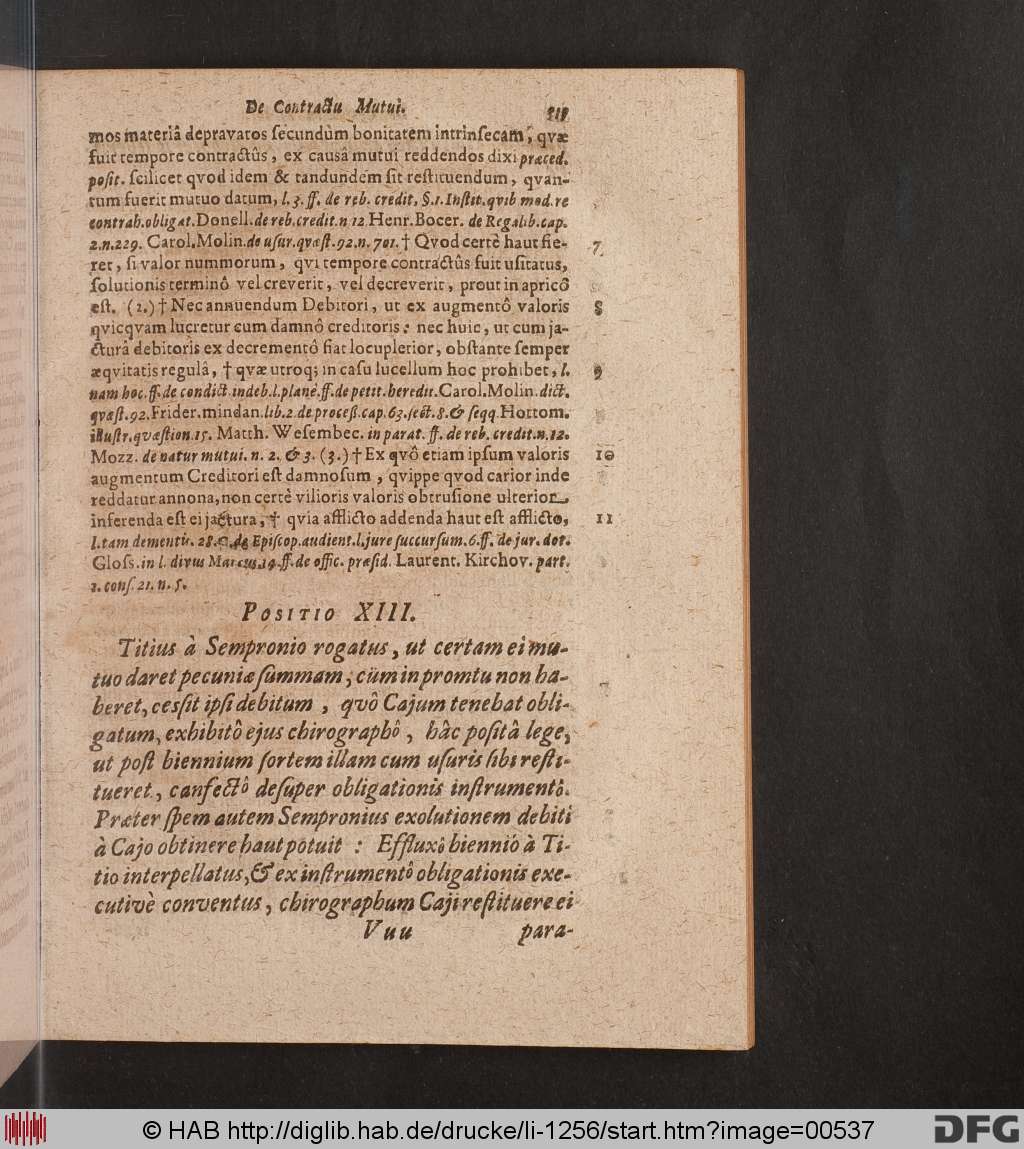 De Contractu Mutui.
mos materiâ depravatos secundùm bonitatem intrinsecam, qvæ
fuit tempore contractûs, ex causâ mutui reddendos dixi præced.
posit. scilicet qvod idem & tandundem sit restituendum, qvan-
tum fuerit mutuo datum, l. 3. ff. de reb. credit, §. 1. Instit. qvib mod. re
contrah. obligat. Donell. de reb. credit. n 12 Henr. Bocer. de Regalib. cap.
2. n. 229. Carol. Molin. de usur. qvæst. 92. n. 701. † Qvod certè haut fie- 7
ret, si valor nummorum, qvi tempore contractûs fuit usitatus,
solutionis terminô vel creverit, vel decreverit, prout in apricô
est. (2.) † Nec annuendum Debitori, ut ex augmentô valoris 8
qvicqvam lucretur cum damnô creditoris: nec huic, ut cum ja-
cturâ debitoris ex decrementô fiat locupletior, obstante semper
æqvitatis regulâ, † qvæ utroq; in casu lucellum hoc prohibet, l. 9
nam hoc. ff. de condict. indeb. l. planè. ff. de petit. heredit. Carol. Molin. dict.
qvæst. 92. Frider. mindan. lib. 2. de proceß. cap. 63. sect. 8. & seqq. Hottom.
illustr. qvæstion. 15. Matth. Wesembec. in parat. ff. de reb. credit. n. 12.
Mozz. de natur mutui. n. 2. & 3. (3.) † Ex qvô etiam ipsum valoris 10
augmentum Creditori est damnosum, qvippe qvod carior inde
reddatur annona, non certè vilioris valoris obtrusione ulterior
inferenda est ei jactura, † qvia afflicto addenda haut est afflicto, 11
l. tam dementis. 28. C. de Episcop. audient. l. jure succursum. 6. ff. de jur. dot.
Gloss. in l. divus Marcus. 14. ff. de offic. præsid. Laurent. Kirchov. part.
cons. 21. n. 5.
POSITIO XIII.
Titius à Sempronio rogatus, ut certam ei mu-
tuo daret pecuniæ summam, cùm in promtu non ha-
beret, cessit ipsi debitum, qvô Cajum tenebat obli-
gatum, exhibitô ejus chirographô, hâc positâ lege,
ut post biennium sortem illam cum usuris sibi resti-
tueret, confectô desuper obligationis instrumentô.
Præter spem autem Sempronius exolutionem debiti
à Cajo obtinere haut potuit : Effluxô bienniô à Ti-
tio interpellatus, & ex instrumentô obligationis exe-
cutivè conventus, chirographum Caji restituere ei
Vuu para-
© HAB http://diglib.hab.de/drucke/li-1256/start.htm?image=00537
DFG